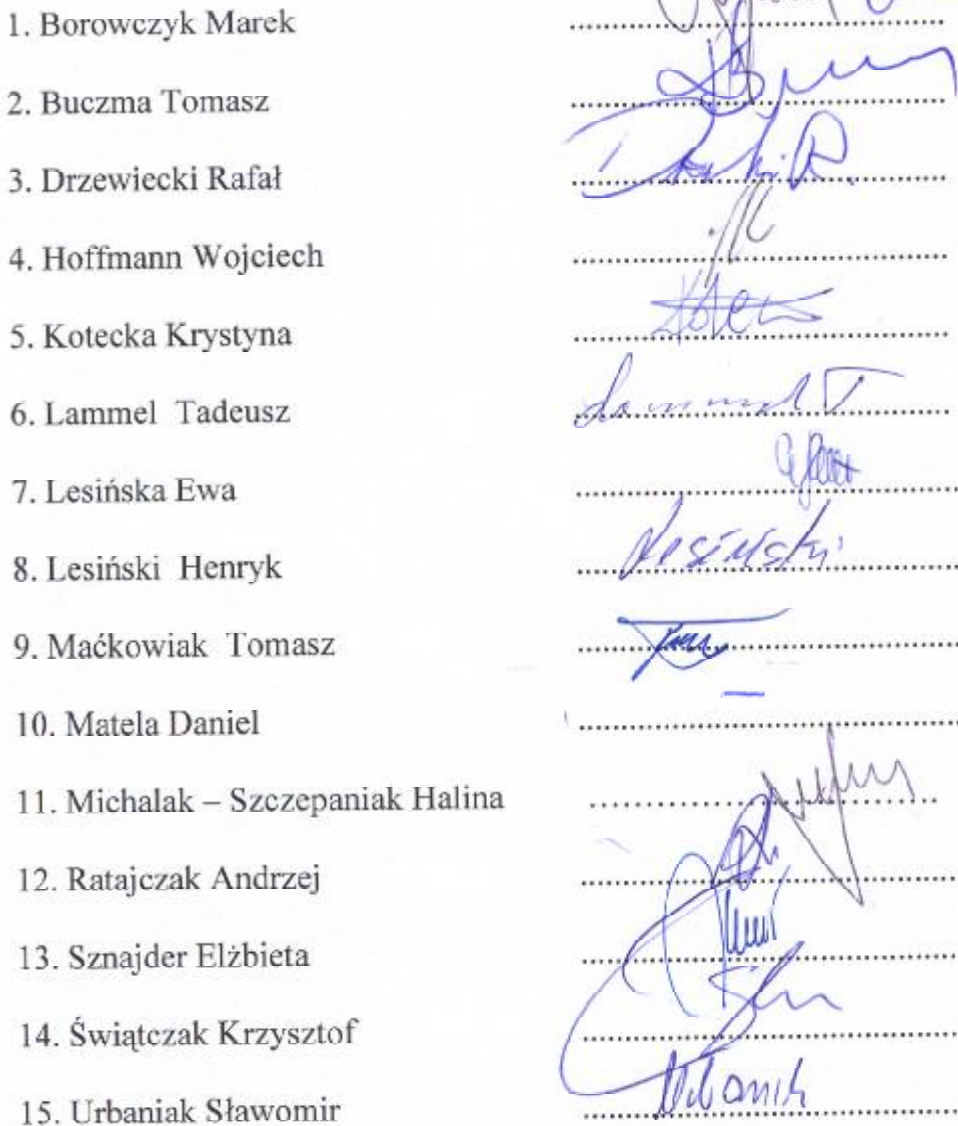 1. Borowczyk Marek ........................................
2. Buczma Tomasz ........................................
3. Drzewiecki Rafał ........................................
4. Hoffmann Wojciech ........................................
5. Kotecka Krystyna ........................................
6. Lammel Tadeusz ........................................ Lammel T
7. Lesińska Ewa ........................................
8. Lesiński Henryk ........................................ Lesiński
9. Maćkowiak Tomasz ........................................
10. Matela Daniel ........................................ —
11. Michalak – Szczepaniak Halina ........................................
12. Ratajczak Andrzej ........................................
13. Sznajder Elżbieta ........................................
14. Świątczak Krzysztof ........................................
15. Urbaniak Sławomir ........................................